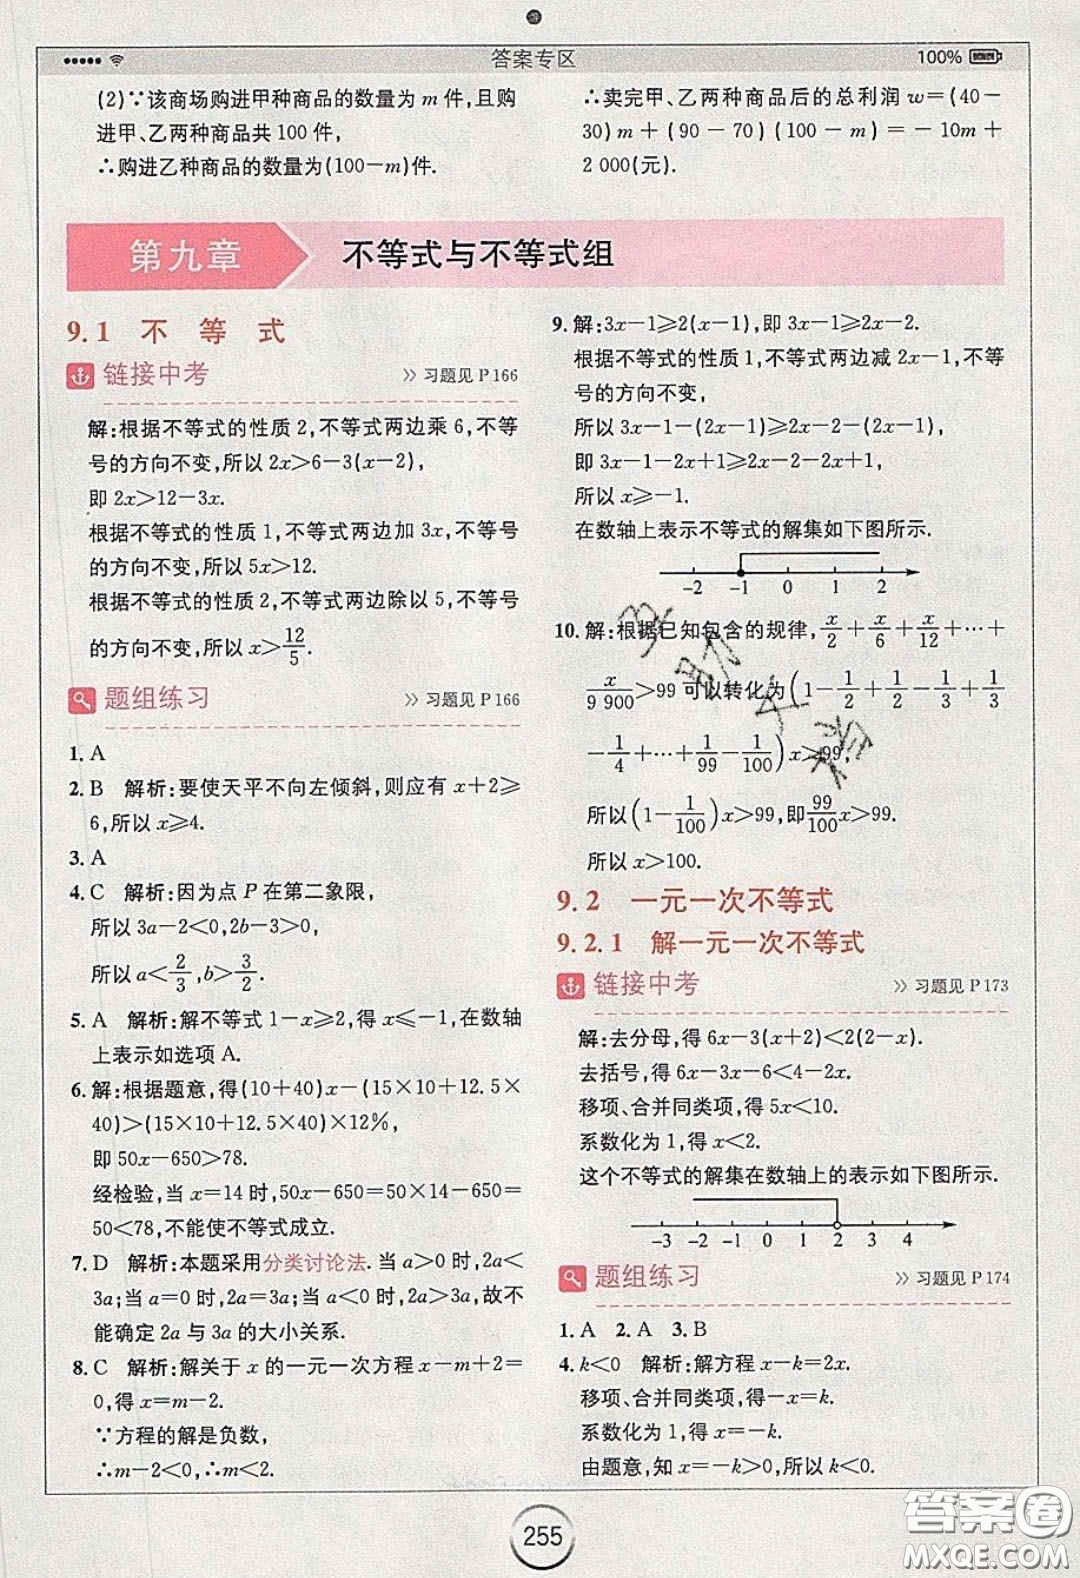 答案专区
100%
(2)∵该商场购进甲种商品的数量为 m 件,且购
进甲、乙两种商品共 100 件,
∴购进乙种商品的数量为(100－m)件.
∴卖完甲、乙两种商品后的总利润 w＝(40－
30)m＋(90－70)(100－m)＝－10m＋
2 000(元).
第九章 不等式与不等式组
9.1 不 等 式
链接中考 >> 习题见 P 166
解:根据不等式的性质 2,不等式两边乘 6,不等
号的方向不变,所以 2x＞6－3(x－2),
即 2x＞12－3x.
根据不等式的性质 1,不等式两边加 3x,不等号
的方向不变,所以 5x＞12.
根据不等式的性质 2,不等式两边除以 5,不等号
的方向不变,所以 x＞12/5.
题组练习 >> 习题见 P 166
1. A
2. B 解析:要使天平不向左倾斜,则应有 x＋2≥
6,所以 x≥4.
3. A
4. C 解析:因为点 P 在第二象限,
所以 3a－2＜0,2b－3＞0,
所以 a＜2/3,b＞3/2.
5. A 解析:解不等式 1－x≥2,得 x≤－1,在数轴
上表示如选项 A.
6. 解:根据题意,得(10＋40)x－(15×10＋12.5×
40)＞(15×10＋12.5×40)×12%,
即 50x－650＞78.
经检验,当 x＝14 时,50x－650＝50×14－650＝
50＜78,不能使不等式成立.
7. D 解析:本题采用分类讨论法.当 a＞0 时,2a＜
3a;当 a＝0 时,2a＝3a;当 a＜0 时,2a＞3a,故不
能确定 2a 与 3a 的大小关系.
8. C 解析:解关于 x 的一元一次方程 x－m＋2＝
0,得 x＝m－2.
∵方程的解是负数,
∴m－2＜0,∴m＜2.
9. 解:3x－1≥2(x－1),即 3x－1≥2x－2.
根据不等式的性质 1,不等式两边减 2x－1,不等
号的方向不变,
所以 3x－1－(2x－1)≥2x－2－(2x－1),
即 3x－1－2x＋1≥2x－2－2x＋1,
所以 x≥－1.
在数轴上表示不等式的解集如下图所示.
－2 －1 0 1 2
10. 解:根据已知包含的规律,x/2＋x/6＋x/12＋…＋
x/9 900＞99 可以转化为(1－1/2＋1/2－1/3＋1/3
－1/4＋…＋1/99－1/100)x＞99,
所以(1－1/100)x＞99,即99/100x＞99.
所以 x＞100.
9.2 一元一次不等式
9.2.1 解一元一次不等式
链接中考 >> 习题见 P 173
解:去分母,得 6x－3(x＋2)＜2(2－x).
去括号,得 6x－3x－6＜4－2x.
移项、合并同类项,得 5x＜10.
系数化为 1,得 x＜2.
这个不等式的解集在数轴上的表示如下图所示.
－3 －2 －1 0 1 2 3 4
题组练习 >> 习题见 P 174
1. A 2. A 3. B
4. k＜0 解析:解方程 x－k＝2x.
移项、合并同类项,得－x＝k.
系数化为 1,得 x＝－k.
由题意,知 x＝－k＞0,所以 k＜0.
255
答案卷
MXQE.COM